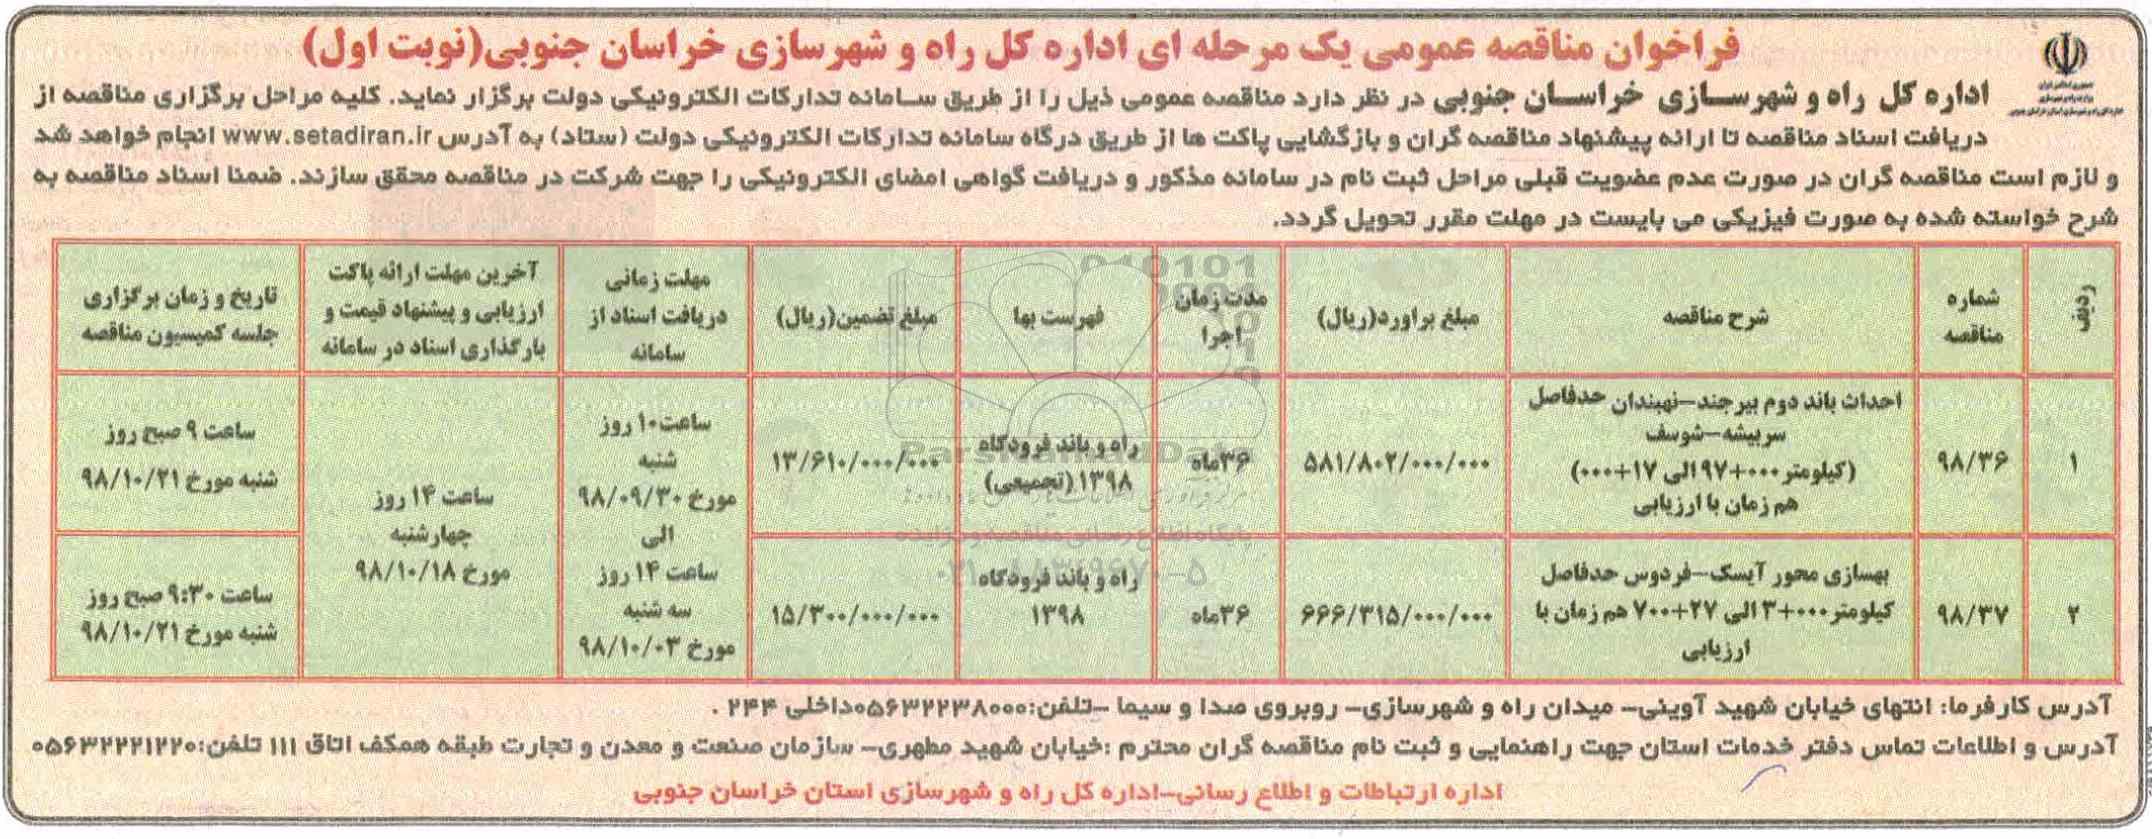 فراخوان مناقصه عمومی یک مرحله ای اداره کل راه و شهرسازی خراسان جنوبی(نوبت اول)
اداره کل راه و شهرسازی خراسان جنوبی در نظر دارد مناقصه عمومی ذیل را از طریق سامانه تدارکات الکترونیکی دولت برگزار نماید. کلیه مراحل برگزاری مناقصه از
دریافت اسناد مناقصه تا ارائه پیشنهاد مناقصه گران و بازگشایی پاکت ها از طریق درگاه سامانه تدارکات الکترونیکی دولت (ستاد) به آدرس www.setadiran.ir انجام خواهد شد
و لازم است مناقصه گران در صورت عدم عضویت قبلی مراحل ثبت نام در سامانه مذکور و دریافت گواهی امضای الکترونیکی را جهت شرکت در مناقصه محقق سازند. ضمنا اسناد مناقصه به
شرح خواسته شده به صورت فیزیکی می بایست در مهلت مقرر تحویل گردد.
ردیف
شماره
مناقصه
شرح مناقصه
مبلغ براورد(ریال)
مدت زمان
اجرا
فهرست بها
مبلغ تضمین(ریال)
مهلت زمانی
دریافت اسناد از
سامانه
آخرین مهلت ارائه پاکت
ارزیابی و پیشنهاد قیمت و
بارگذاری اسناد در سامانه
تاریخ و زمان برگزاری
جلسه کمیسیون مناقصه
۱
۹۸/۳۶
احداث باند دوم بیرجند–نهبندان حدفاصل
سربیشه–شوسف
(کیلومتر ۰۰۰+۹۷ الی ۱۷+۰۰۰)
هم زمان با ارزیابی
۵۸۱/۸۰۲/۰۰۰/۰۰۰
۳۶ماه
راه و باند فرودگاه
۱۳۹۸ (تجمیعی)
۱۳/۶۱۰/۰۰۰/۰۰۰
ساعت۱۰ روز
شنبه
مورخ ۹۸/۰۹/۳۰
الی
ساعت ۱۴ روز
سه شنبه
مورخ ۹۸/۱۰/۰۳
ساعت ۱۴ روز
چهارشنبه
مورخ ۹۸/۱۰/۱۸
ساعت ۹ صبح روز
شنبه مورخ ۹۸/۱۰/۲۱
۲
۹۸/۳۷
بهسازی محور آیسک–فردوس حدفاصل
کیلومتر ۰۰۰+۳ الی ۲۷+۷۰۰ هم زمان با
ارزیابی
۶۶۶/۳۱۵/۰۰۰/۰۰۰
۳۶ماه
راه و باند فرودگاه
۱۳۹۸
۱۵/۳۰۰/۰۰۰/۰۰۰
ساعت ۹:۳۰ صبح روز
شنبه مورخ ۹۸/۱۰/۲۱
آدرس کارفرما: انتهای خیابان شهید آوینی– میدان راه و شهرسازی– روبروی صدا و سیما –تلفن:۰۵۶۳۲۲۳۸۰۰۰داخلی ۲۴۴ .
آدرس و اطلاعات تماس دفتر خدمات استان جهت راهنمایی و ثبت نام مناقصه گران محترم :خیابان شهید مطهری– سازمان صنعت و معدن و تجارت طبقه همکف اتاق ۱۱۱ تلفن:۰۵۶۳۲۲۲۱۲۲۰
اداره ارتباطات و اطلاع رسانی–اداره کل راه و شهرسازی استان خراسان جنوبی